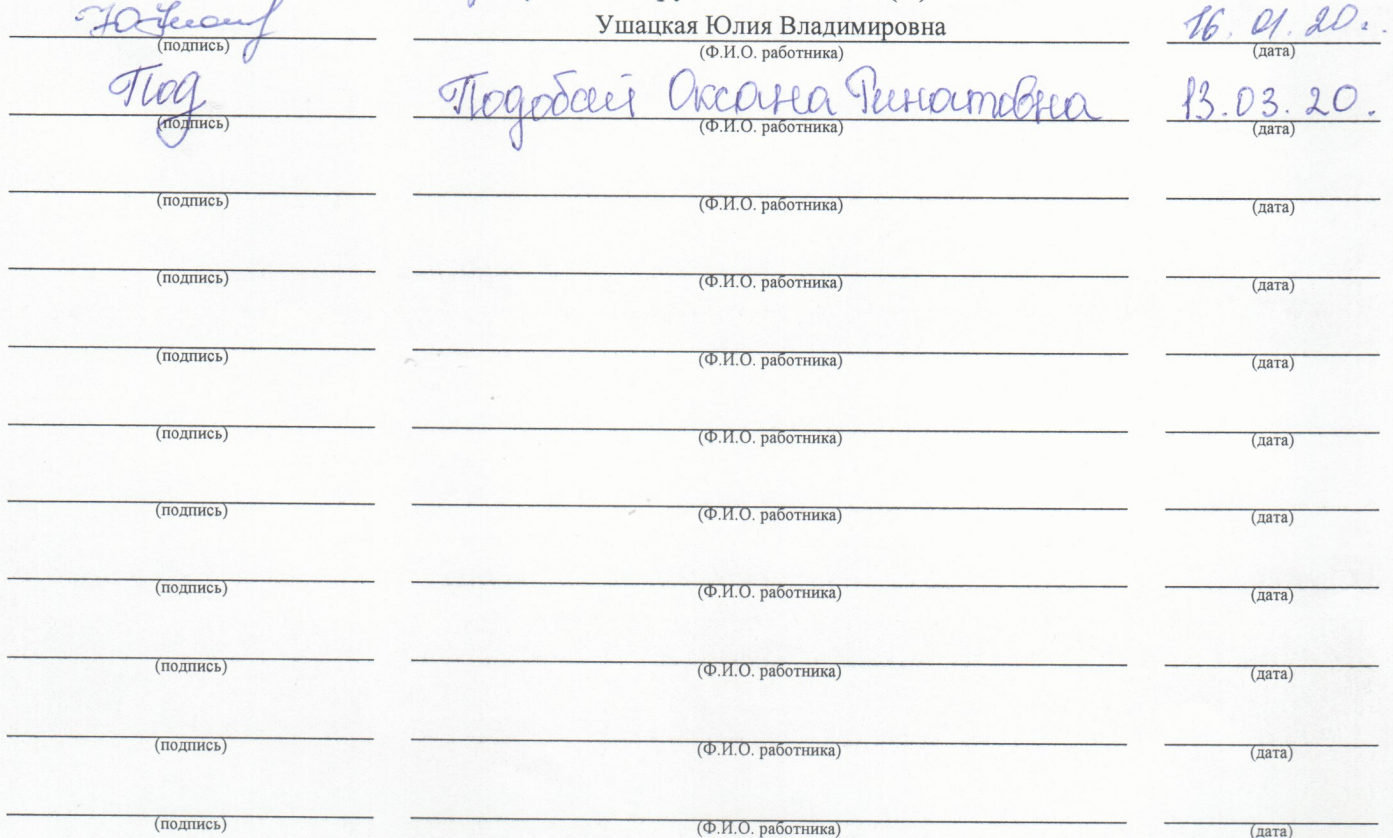 Ушацкая Юлия Владимировна 16.01.20г.
(подпись) (Ф.И.О. работника) (дата)
Под Подобай Оксана Ринатовна 13.03.20.
(подпись) (Ф.И.О. работника) (дата)
(подпись) (Ф.И.О. работника) (дата)
(подпись) (Ф.И.О. работника) (дата)
(подпись) (Ф.И.О. работника) (дата)
(подпись) (Ф.И.О. работника) (дата)
(подпись) (Ф.И.О. работника) (дата)
(подпись) (Ф.И.О. работника) (дата)
(подпись) (Ф.И.О. работника) (дата)
(подпись) (Ф.И.О. работника) (дата)
(подпись) (Ф.И.О. работника) (дата)